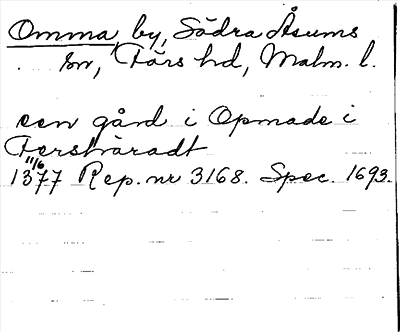 Omma by, Södra Åsums
sn, Färs hd, Malm. l.
een gård i Opmade i
Fershäradt
11/6
1377 Rep. nr 3168. Spec. 1693.